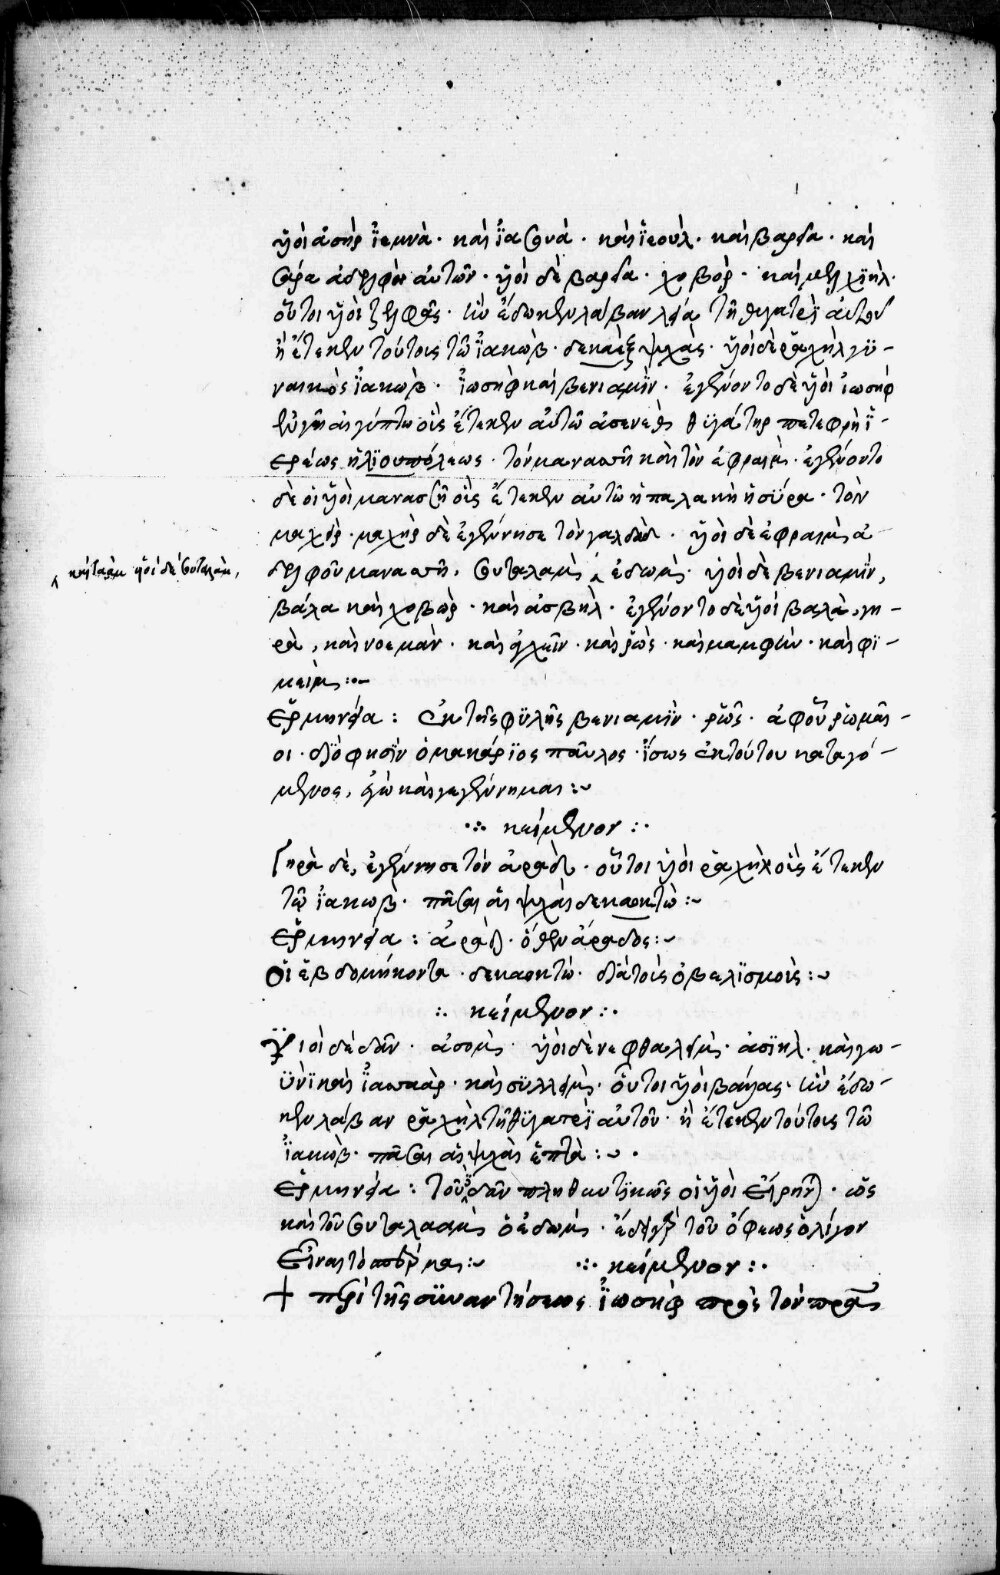 υἱοὶ ἀσὴρ ἰεμνὰ· καὶ ἰασουὰ· καὶ ἰεοὺλ· καὶ βαρία· καὶ
σάρα ἀδελφὴ αὐτῶν· υἱοὶ δὲ βαρία· χοβὸρ· καὶ μελχιὴλ·
οὗτοι υἱοὶ ζελφᾶς· ἣν ἔδωκεν λάβαν λεία τῆ θυγατρὶ αὐτοῦ
ἣ ἔτεκεν τούτους τῶ ἰακὼβ· δεκαὲξ ψυχὰς· υἱοὶ δὲ ῥαχὴλ γυ-
ναικὸς ἰακὼβ· ἰωσὴφ καὶ βενιαμὶν· ἐγένοντο δὲ υἱοὶ ἰωσὴφ
ἐν γῆ αἰγύπτω οὓς ἔτεκεν αὐτῶ ἀσενεθ θυγάτηρ πετεφρῆ ἱ-
ερέως ἡλιουπόλεως· τὸν μανασσῆ καὶ τὸν ἐφραὶμ· ἐγένοντο
δὲ οἱ υἱοὶ μανασσῆ οὓς ἔτεκεν αὐτῶ ἡ παλακὴ ἡ σύρα· τὸν
μαχὴρ· μαχὴρ δὲ ἐγέννησε τὸν γαλαάδ· υἱοὶ δὲ ἐφραὶμ ἀ-
δελφοῦ μανασσῆ, σουταλαὰμ ἐδὼμ· υἱοὶ δὲ βενιαμὶν,
καὶ ταὰμ υἱοὶ δὲ σουταλαὰμ,
βάλα καὶ χοβὼρ· καὶ ἀσβὴλ· ἐγένοντο δὲ υἱοὶ βαλὰ, γη-
ρὰ, καὶ νοεμὰν· καὶ ἀγχεῖν· καὶ ῥὼς· καὶ μαμφὶν· καὶ φι-
μεὶμ:~
Ἑρμηνεία: Ἐκ τῆς φυλῆς βενιαμὶν· ῥῶς· ἀφ' οὗ ῥωμαῖ-
οι· διό φησιν ὁ μακάριος παῦλος· ἴσως ἐκ τούτου καταγό-
μενος, ἐγὼ καὶ γεγέννημαι:~
·:· κείμενον:·
Γηρὰ δὲ, ἐγέννησε τὸν ἀρὰδ· οὗτοι υἱοὶ ῥαχὴλ οὓς ἔτεκεν
τῶ ἰακωβ· πᾶσαι αἱ ψυχαὶ δεκαοκτὼ:~
Ἑρμηνεία: ἀρὰδ· ὅθεν ἄραδος:~
Οἱ ἑβδομήκοντα· δεκαοκτὼ· διὰ τοὺς ὀβελισμοὺς:~
:· κείμενον:·
Υἱοὶ δὲ δᾶν· ἀσομ· υἱοὶ δὲ νεφθαλεὶμ· ἀσιὴλ· καὶ γω-
υνὶ καὶ ἰσσαὰρ· καὶ συλλεὶμ· οὗτοι υἱοὶ βάλας· ἣν ἔδω-
κεν λάβαν ῥαχὴλ τῆ θυγατρὶ αὐτοῦ· ἣ ἔτεκεν τούτους τῶ
ἰακὼβ· πᾶσαι αἱ ψυχαὶ ἑπτὰ:~·
Ἑρμηνεία: τοῦ δᾶν πληθυντικῶς οἱ υἱοὶ εἴρηνται· ὡς
καὶ τοῦ σουταλαὰμ ὁ ἐδὼμ· τοῦ ὕφεως ὀλίγον
:~ ·:· κείμενον:·
+ περὶ τῆς συναντήσεως ἰωσὴφ πρὸς τὸν πρα